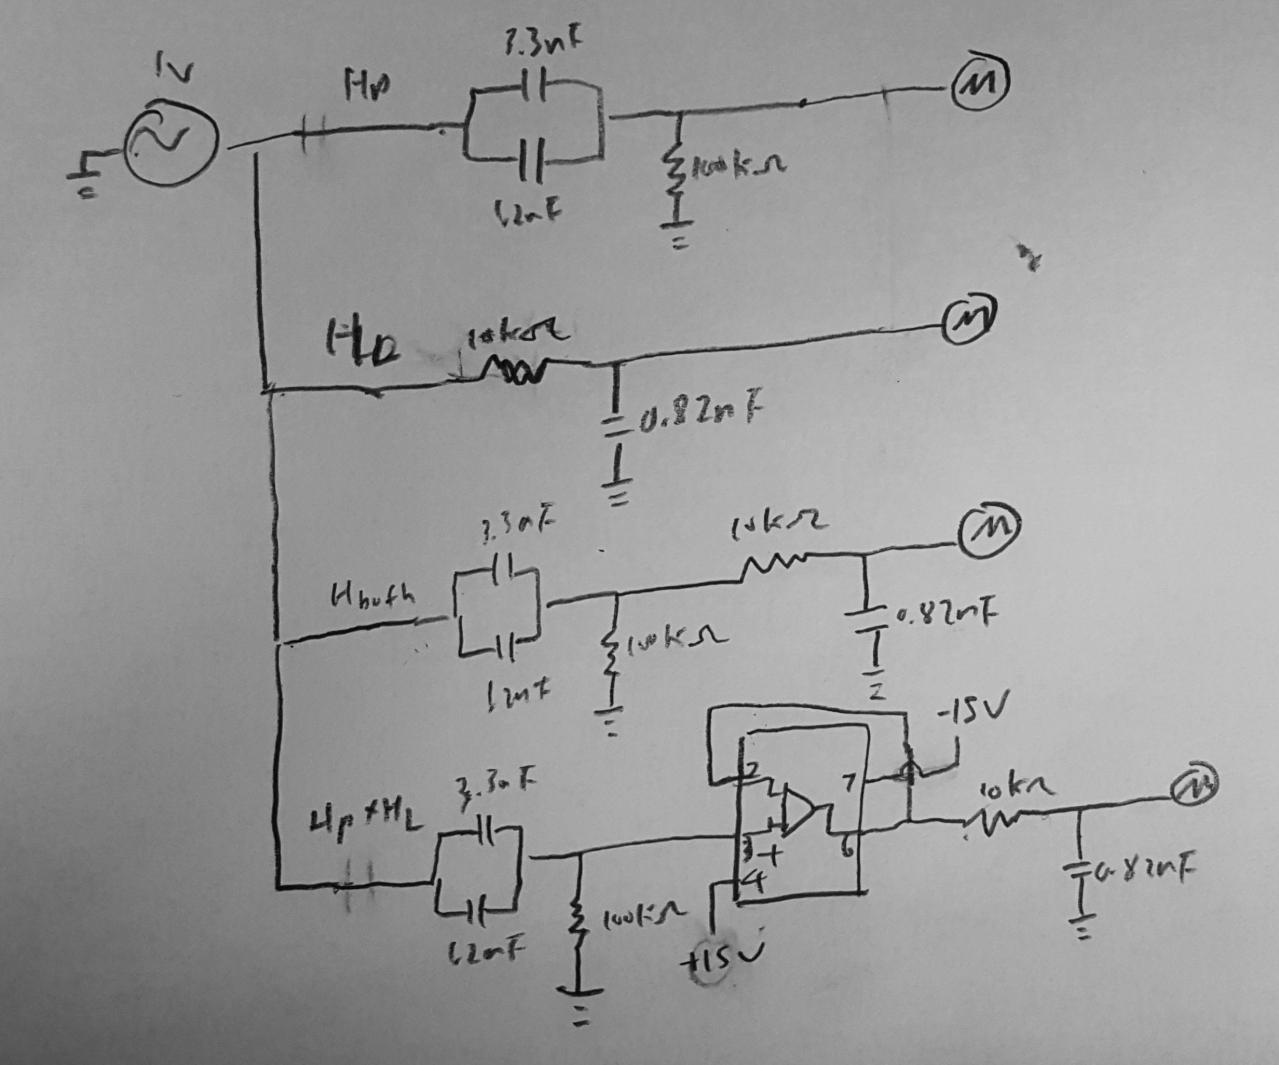 1V
Hp
3.3nF
1.2nF
100kΩ
M
HLP
10kΩ
0.82nF
M
Hboth
3.3nF
1.2nF
100kΩ
10kΩ
0.82nF
M
Hp+HL
3.3nF
1.2nF
100kΩ
2
3
+
4
+15V
7
6
-15V
10kΩ
0.82nF
M